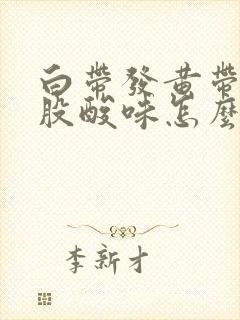 白帶發黃帶
股酸味怎麼
李新才